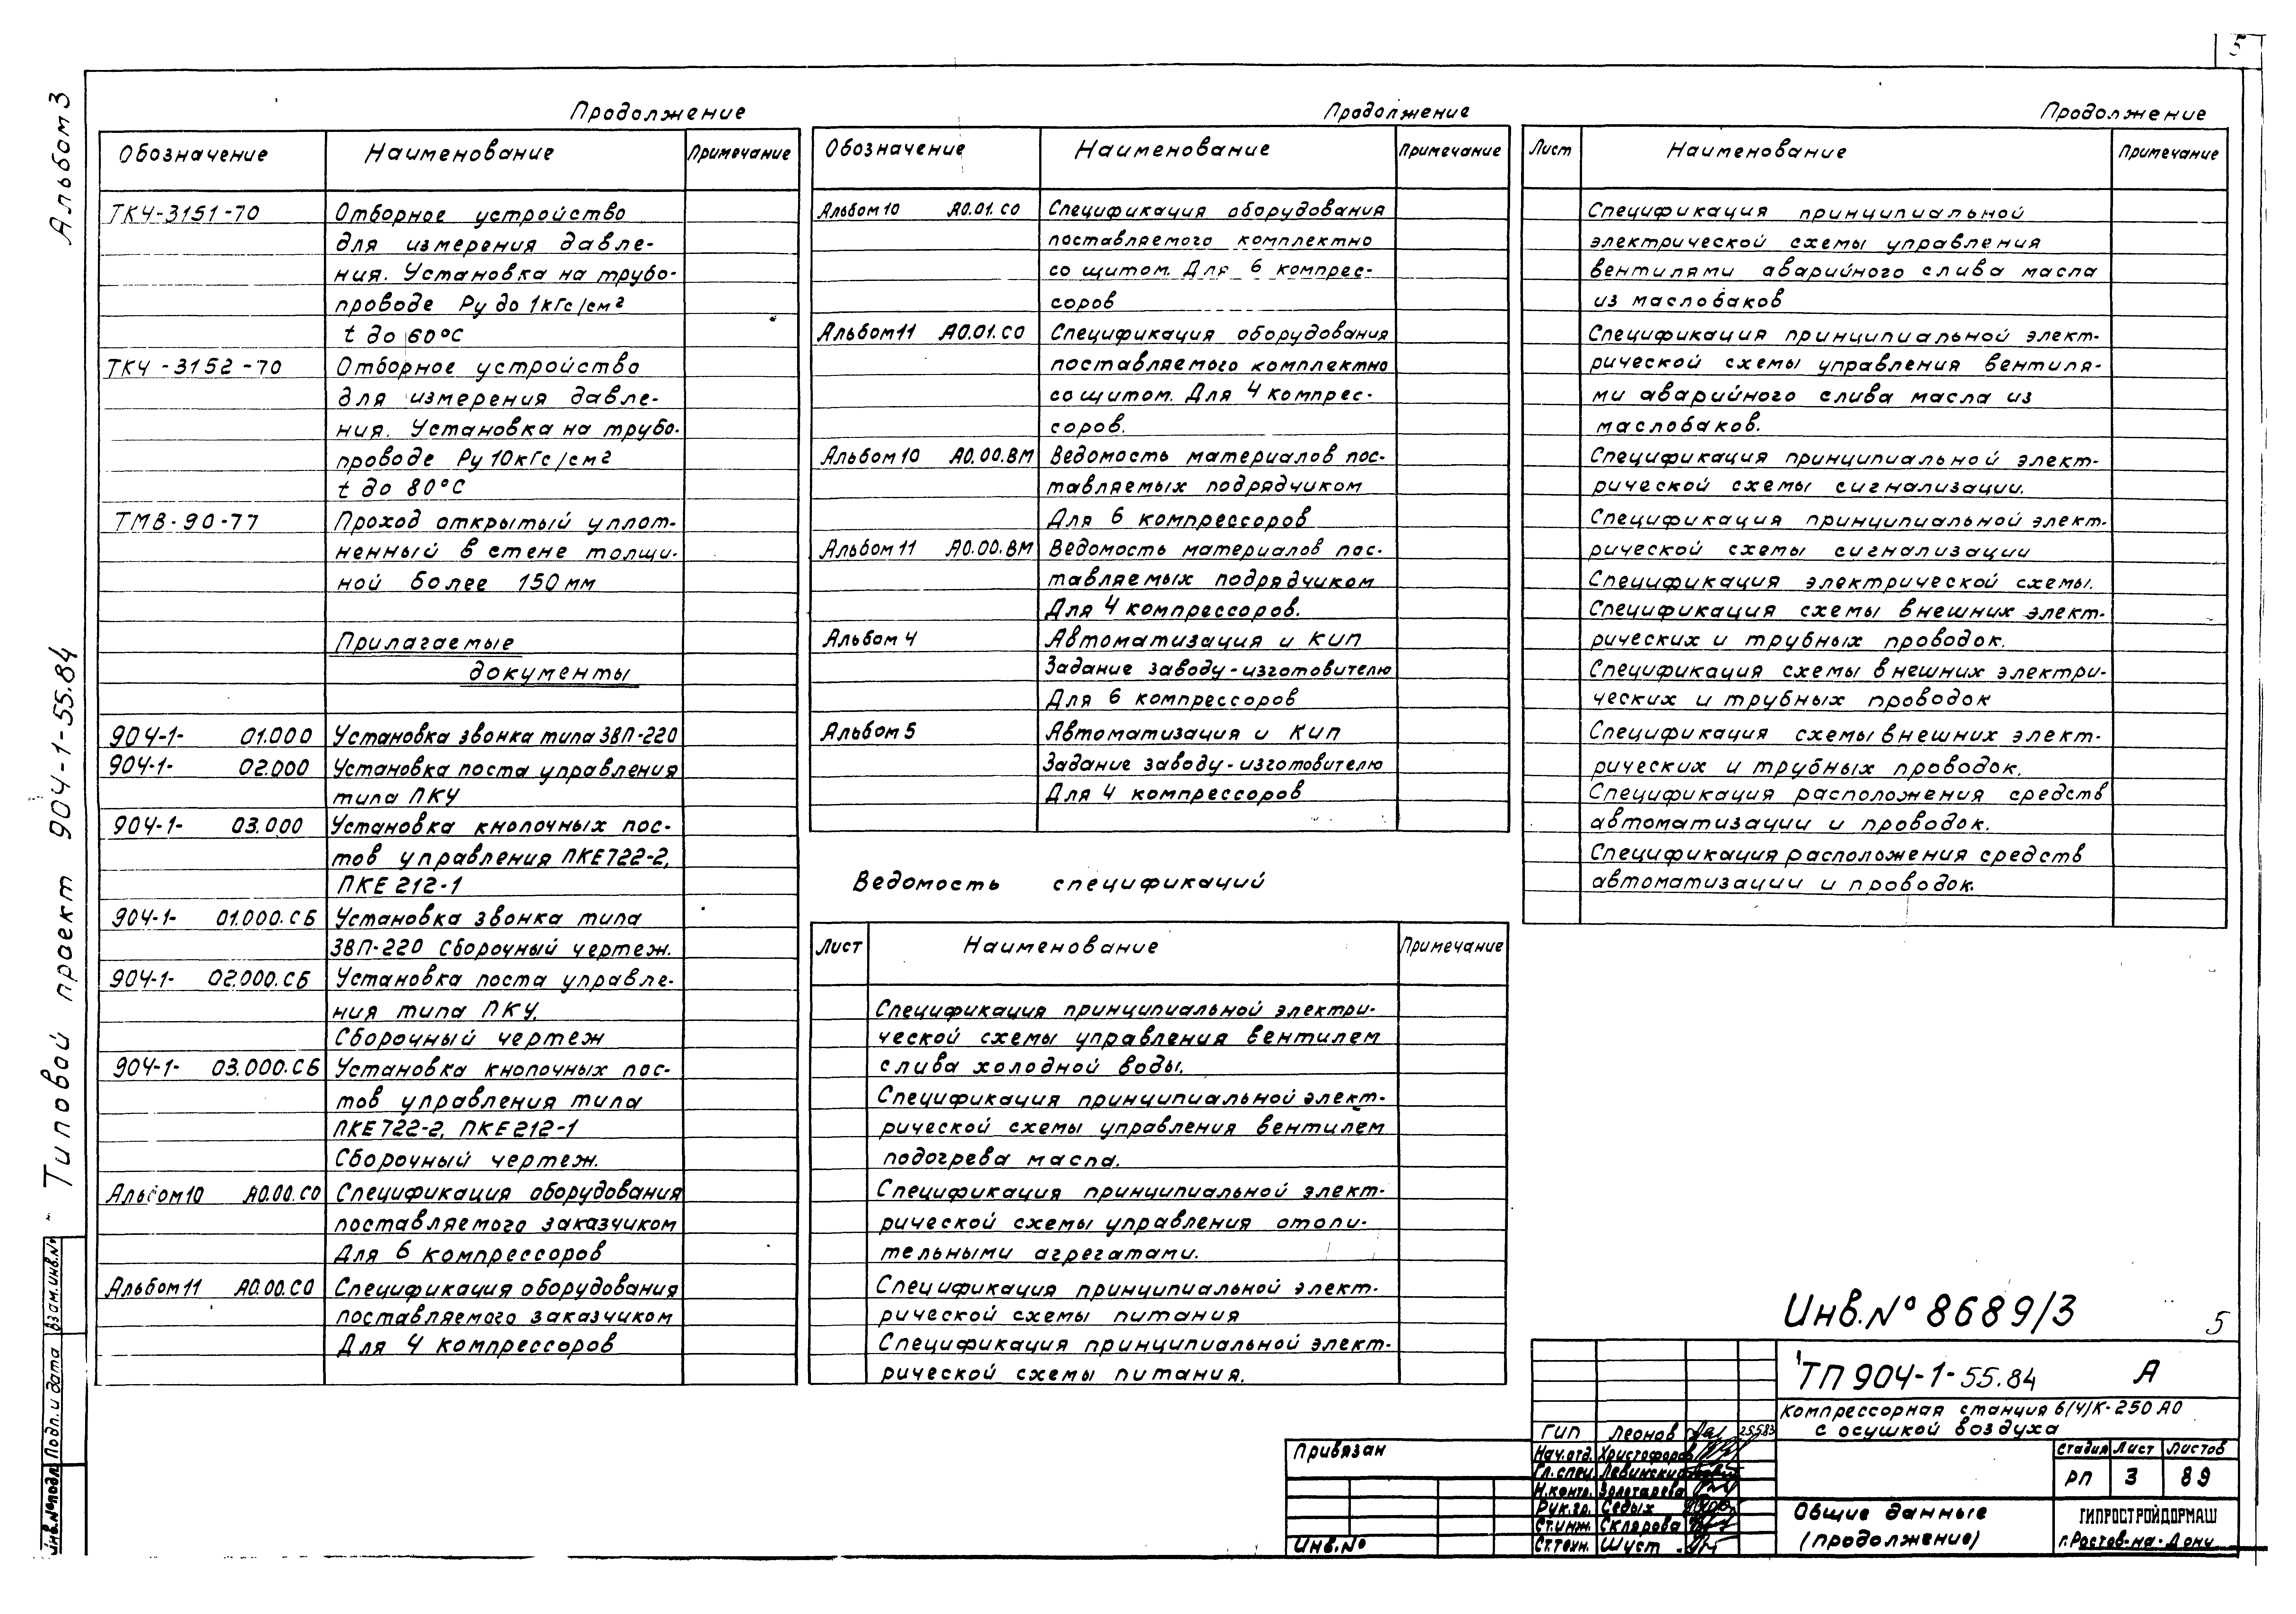 5
Альбом 3
Типовой проект 904-1-55.84
Продолжение
Обозначение Наименование Примечание
ТКЧ-3151-70 Отборное устройство
для измерения давле-
ния. Установка на трубо-
проводе Ру до 1кГс/см²
t до 60°С
ТКЧ-3152-70 Отборное устройство
для измерения давле-
ния. Установка на трубо-
проводе Ру 10кГс/см²
t до 80°С
ТМВ-90-77 Проход открытый уплот-
ненный в стене толщи-
ной более 150 мм
Прилагаемые
документы
904-1- 01.000 Установка звонка типа ЗВП-220
904-1- 02.000 Установка поста управления
типа ПКУ
904-1- 03.000 Установка кнопочных пос-
тов управления ПКЕ722-2,
ПКЕ 212-1
904-1- 01.000.СБ Установка звонка типа
ЗВП-220 Сборочный чертеж.
904-1- 02.000.СБ Установка поста управле-
ния типа ПКУ.
Сборочный чертеж
904-1- 03.000.СБ Установка кнопочных пос-
тов управления типа
ПКЕ 722-2, ПКЕ 212-1
Сборочный чертеж.
Альбом 10 А0.00.СО Спецификация оборудования
поставляемого заказчиком
Для 6 компрессоров
Альбом 11 А0.00.СО Спецификация оборудования
поставляемого заказчиком
Для 4 компрессоров
Продолжение
Обозначение Наименование Примечание
Альбом 10 А0.01.СО Спецификация оборудования
поставляемого комплектно
со щитом. Для 6 компрес-
соров
Альбом 11 А0.01.СО Спецификация оборудования
поставляемого комплектно
со щитом. Для 4 компрес-
соров.
Альбом 10 А0.00.ВМ Ведомость материалов пос-
тавляемых подрядчиком
Для 6 компрессоров
Альбом 11 А0.00.ВМ Ведомость материалов пос-
тавляемых подрядчиком
Для 4 компрессоров.
Альбом 4 Автоматизация и КИП
Задание заводу-изготовителю
Для 6 компрессоров
Альбом 5 Автоматизация и КИП
Задание заводу-изготовителю
Для 4 компрессоров
Ведомость спецификаций
Лист Наименование Примечание
Спецификация принципиальной электри-
ческой схемы управления вентилем
слива холодной воды.
Спецификация принципиальной элект-
рической схемы управления вентилем
подогрева масла.
Спецификация принципиальной элект-
рической схемы управления отопи-
тельными агрегатами.
Спецификация принципиальной элект-
рической схемы питания
Спецификация принципиальной элект-
рической схемы питания.
Продолжение
Лист Наименование Примечание
Спецификация принципиальной
электрической схемы управления
вентилями аварийного слива масла
из маслобаков
Спецификация принципиальной элект-
рической схемы управления вентиля-
ми аварийного слива масла из
маслобаков.
Спецификация принципиальной элект-
рической схемы сигнализации.
Спецификация принципиальной элект-
рической схемы сигнализации
Спецификация электрической схемы.
Спецификация схемы внешних элект-
рических и трубных проводок.
Спецификация схемы внешних электри-
ческих и трубных проводок
Спецификация схемы внешних элект-
рических и трубных проводок.
Спецификация расположения средств
автоматизации и проводок.
Спецификация расположения средств
автоматизации и проводок.
Инв.№ 8689/3
5
ТП 904-1-55.84 А
Компрессорная станция 6(4)К-250 А0
с осушкой воздуха
ГИП Леонов 25.5.83
Нач.отд. Христофоров
Гл.спец. Левинский
Н.контр. Золотарева
Рук.гр. Седых
Ст.инж. Склярова
Ст.техн. Шуст
Стадия Лист Листов
РП 3 89
Общие данные
(продолжение)
ГИПРОСТРОЙДОРМАШ
г.Ростов-на-Дону
Привязан
Инв.№
Взам.инв.№
Подп. и дата
Инв.№ подл.